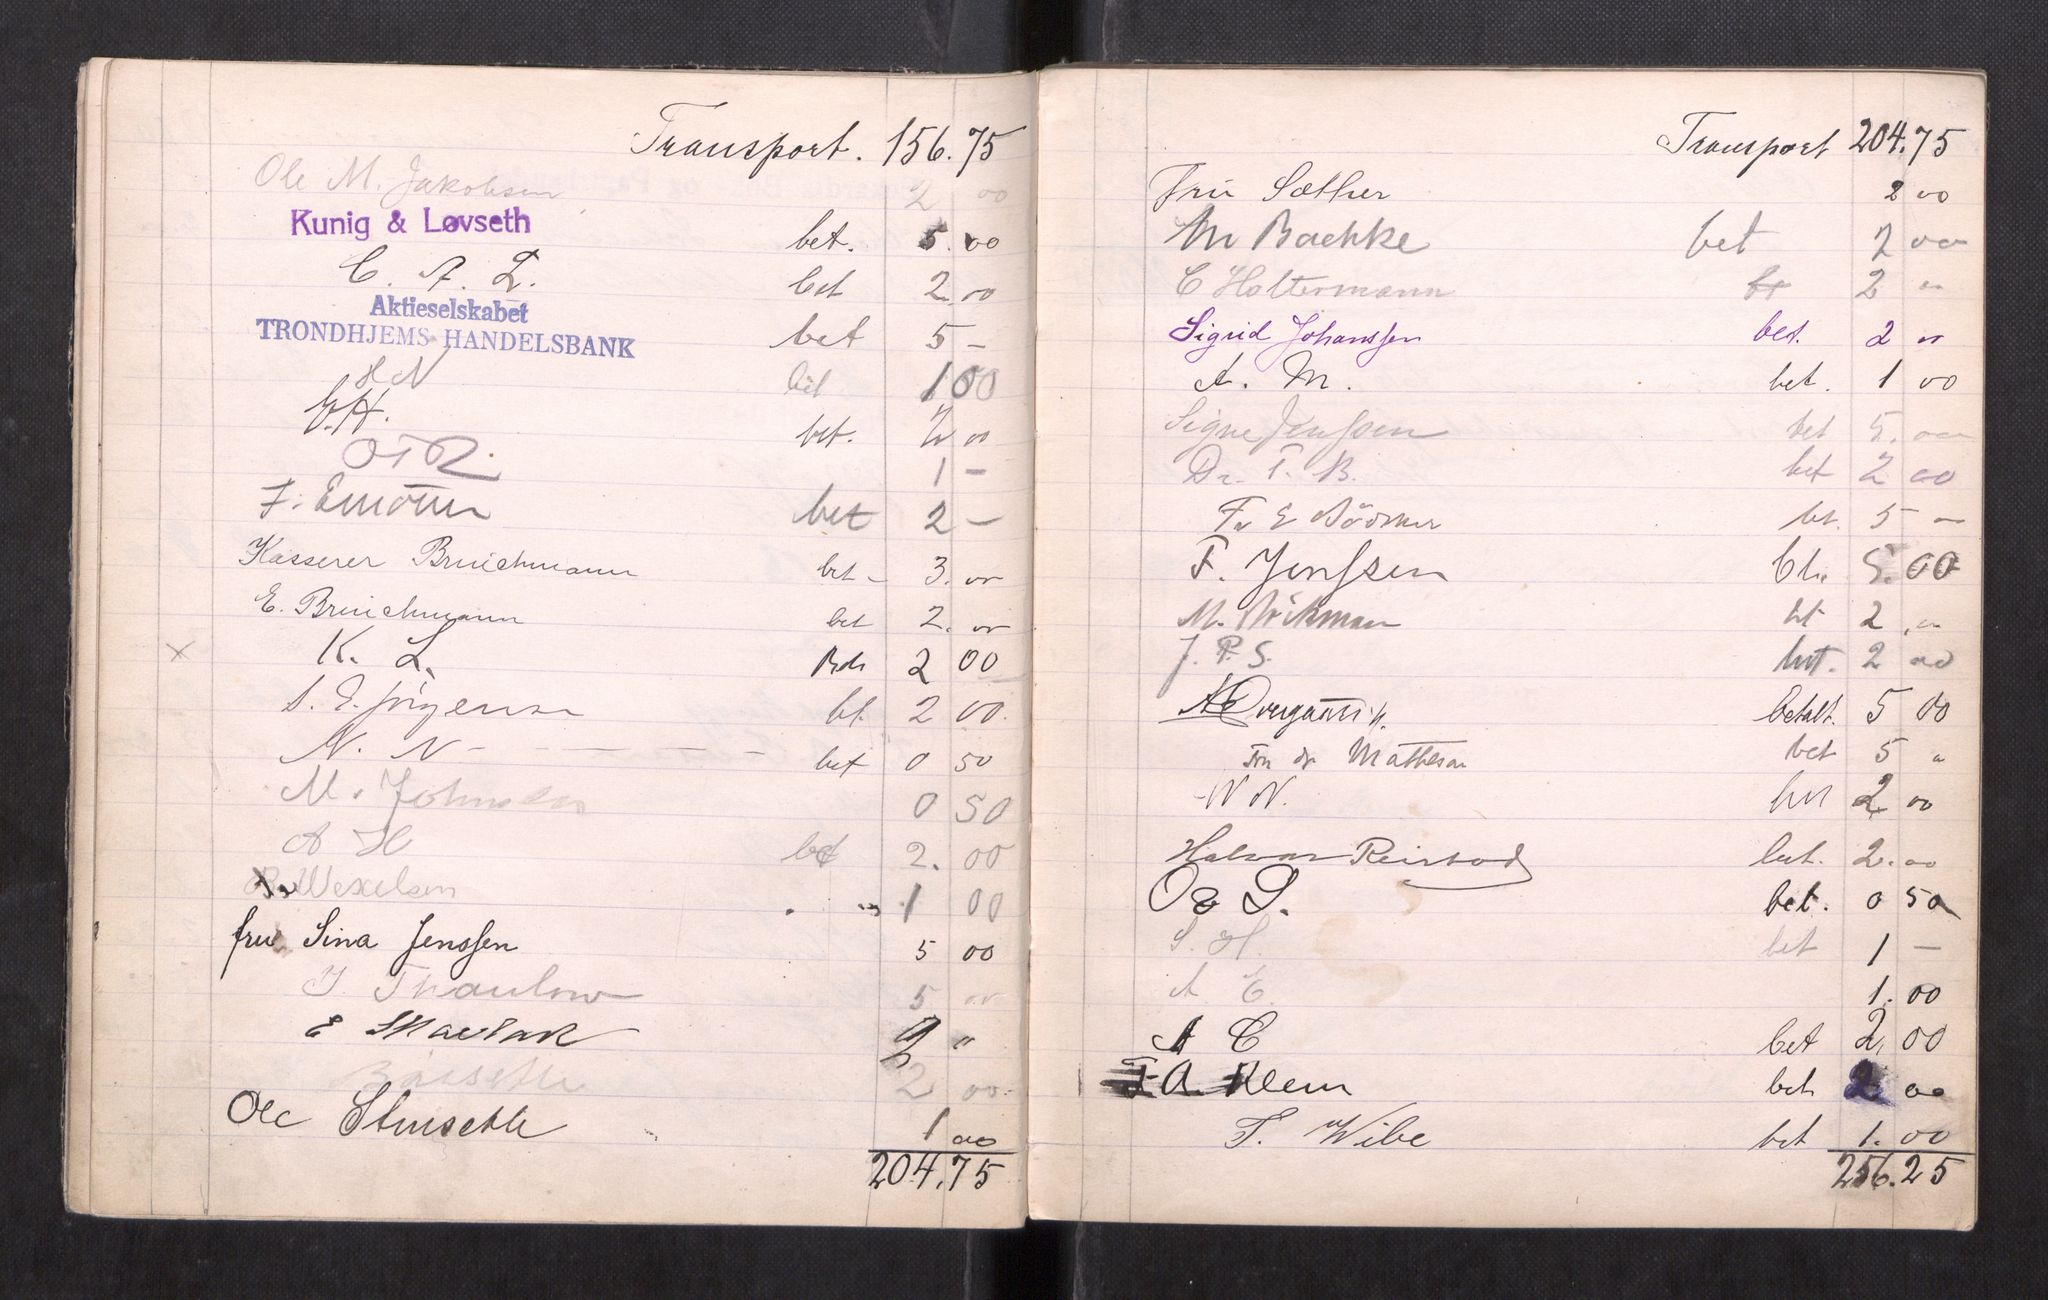 Transport. 156.75
Ole M. Jakobsen 2 00
Kunig & Løvseth bet. 5.00
C. A. L. bet 2.00
Aktieselskabet
TRONDHJEMS HANDELSBANK bet 5 –
H N bet 1 00
G.H. bet. 2 00
1 –
F. bet 2 –
Kasserer Bruichmann bet – 3.00
E. Bruichmann bet 2.00
x K. L. 2 00
S. E. Jörgensen bt. 2 00.
N. N – – – – – bet 0 50
M. Johnsen 0 50
A H bet 2.00
Wexelsen 1 00
fru Sina Jenssen 5 00
J. Thaulow 5 00
E 2 "
2 00.
Ole 1 00
204.75
Transport 204.75
Fru Sæther 2 00
M Bachke bet 2 00
C Holtermann bt 2 "
Sigrid Johanssen bet. 2 00
A. M. bet. 1 00
Signe Jenssen bet 5.00
Dr. F. B. bet 2 00
Fr E Bödtker bt. 5 –
F. Jenssen 5.00
M. Wikman bt 2.00
J. P. S. bet. 2 00
betalt. 5 00
Fru dr Matheson bet 5 "
N N. bet 2 00
Halvar Reirstad bet. 2.00
O S. bet. 0 50
S. H. bet 1 –
A E. 1.00
A C bet 2.00
F A. Klem bet 2 00
F. Wibe bet 1.00
256.25